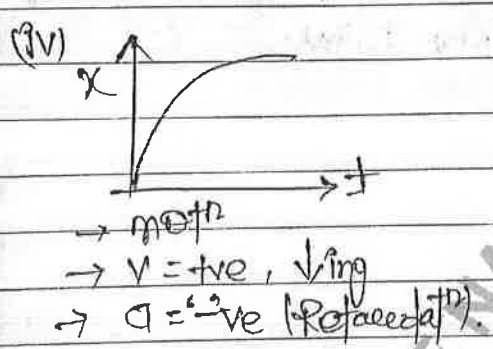 (iv)
x
t
→ motn
→ v = +ve, ↓ing
→ a = "-"ve (Retardatn).